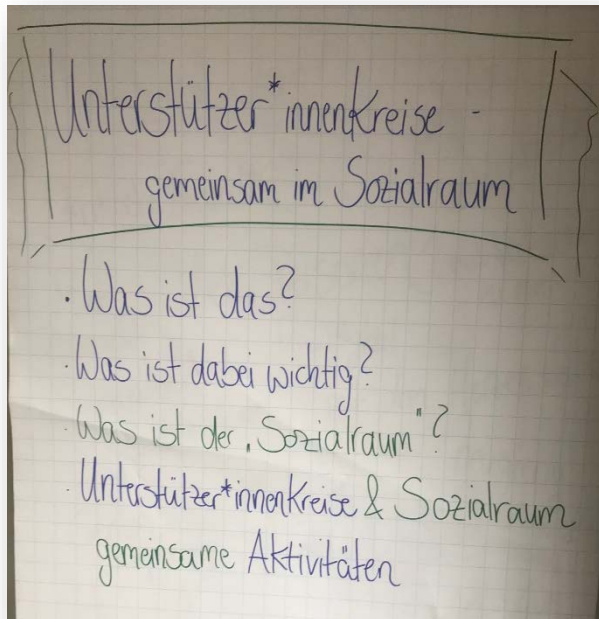 Unterstützer*innenkreise -
gemeinsam im Sozialraum
· Was ist das?
· Was ist dabei wichtig?
· Was ist der „Sozialraum"?
· Unterstützer*innenkreise & Sozialraum
gemeinsame Aktivitäten